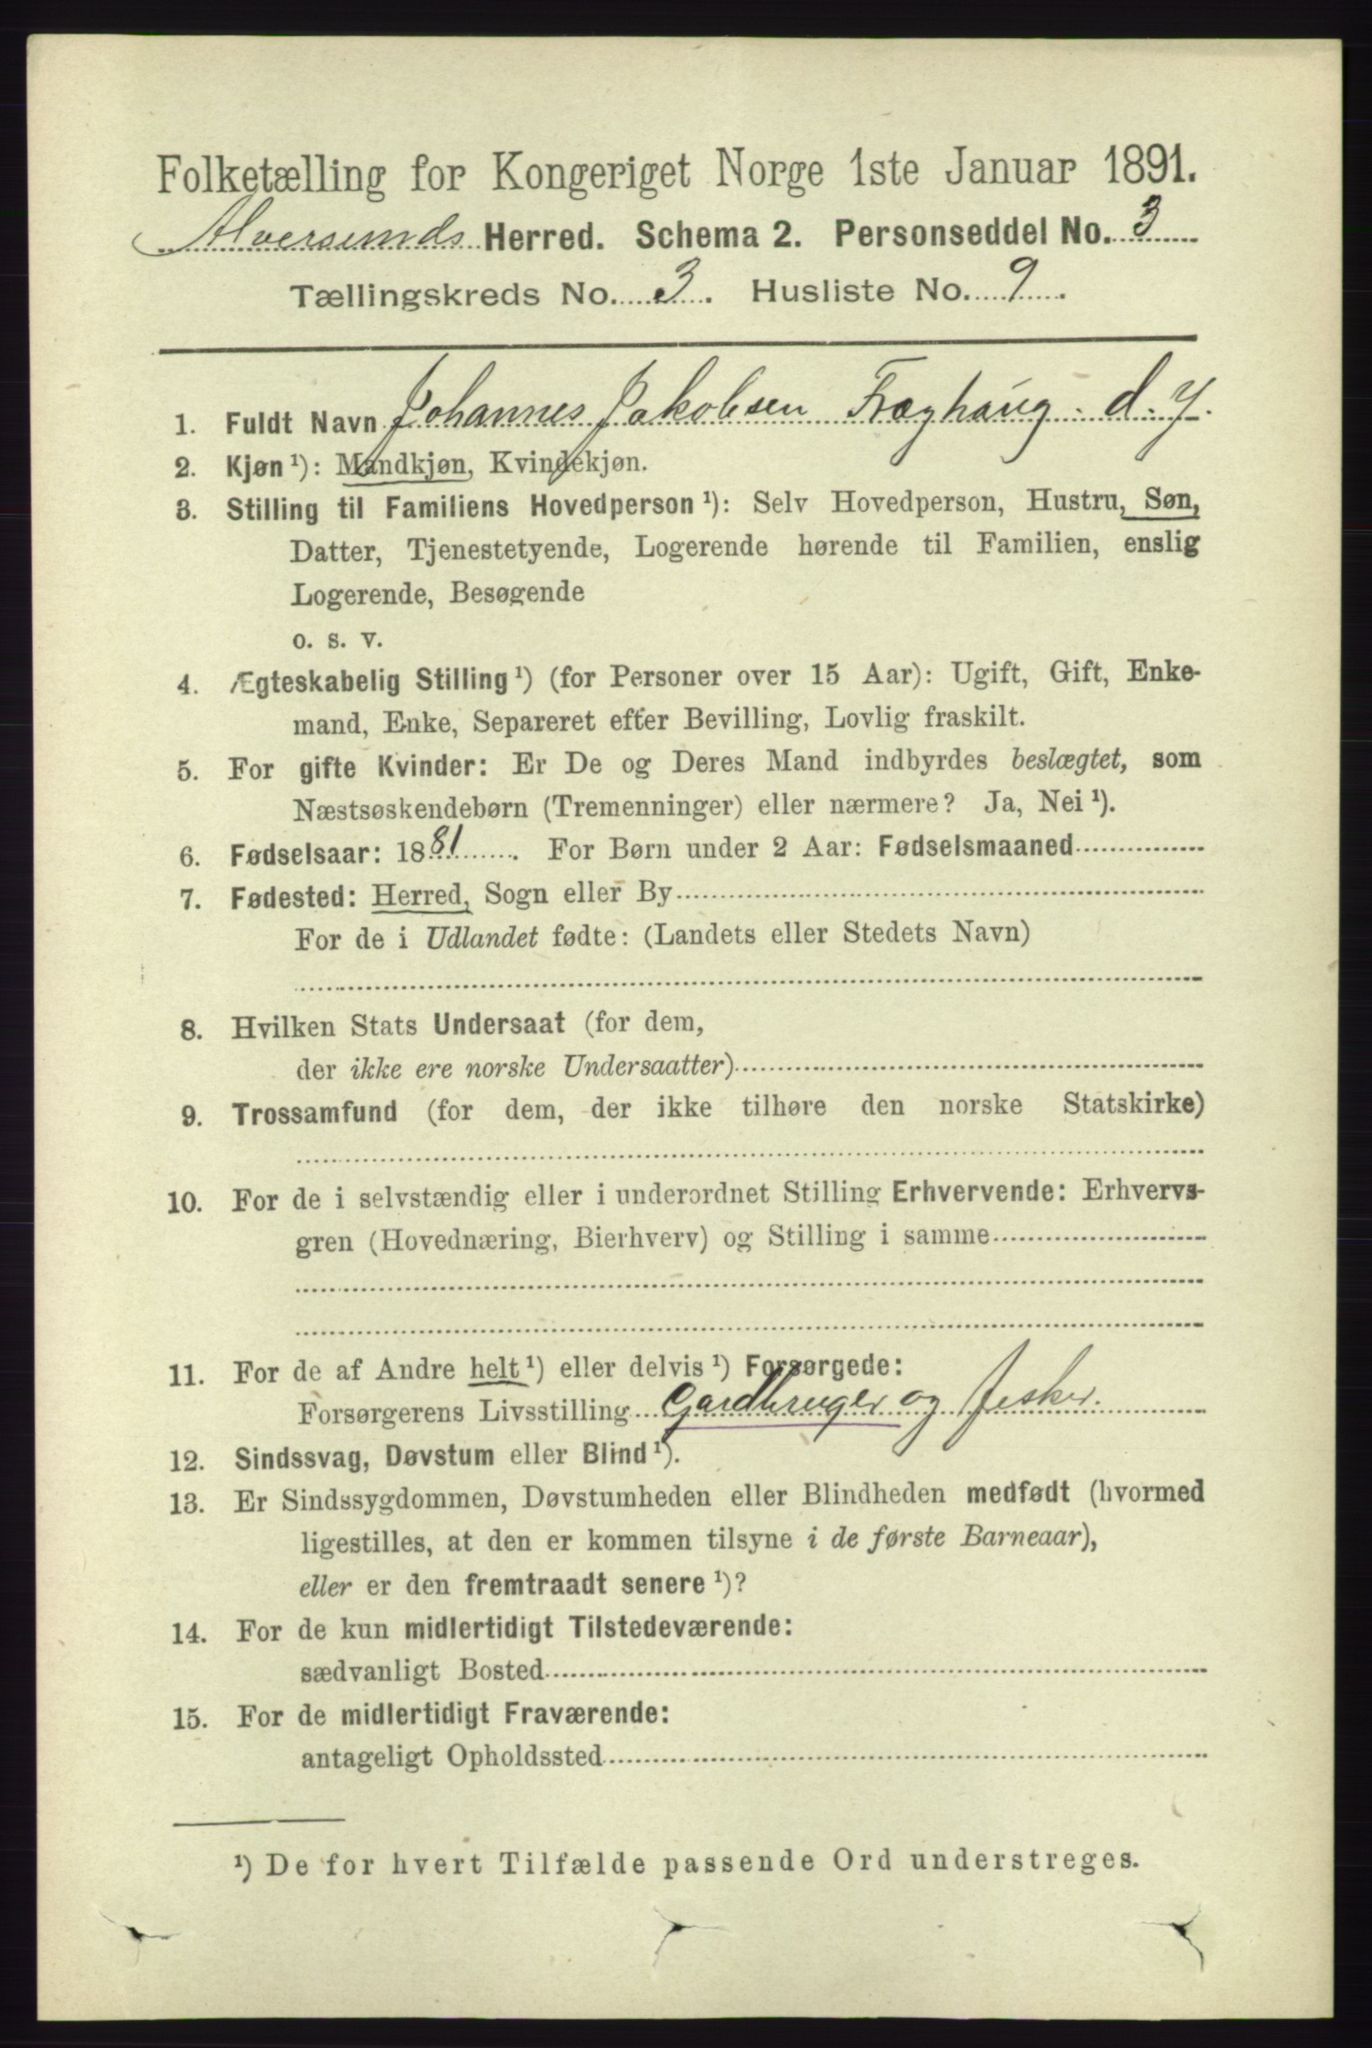 Folketælling for Kongeriget Norge 1ste Januar 1891.
Alversunds Herred. Schema 2. Personseddel No. 3
Tællingskreds No. 3. Husliste No. 9.
1. Fuldt Navn Johannes Jakobsen Fræhaug d. y.
2. Kjøn ¹): Mandkjøn, Kvindekjøn.
3. Stilling til Familiens Hovedperson ¹): Selv Hovedperson, Hustru, Søn,
Datter, Tjenestetyende, Logerende hørende til Familien, enslig
Logerende, Besøgende
o. s. v.
4. Ægteskabelig Stilling ¹) (for Personer over 15 Aar): Ugift, Gift, Enke-
mand, Enke, Separeret efter Bevilling, Lovlig fraskilt.
5. For gifte Kvinder: Er De og Deres Mand indbyrdes beslægtet, som
Næstsøskendebørn (Tremenninger) eller nærmere? Ja, Nei ¹).
6. Fødselsaar: 1881. For Børn under 2 Aar: Fødselsmaaned
7. Fødested: Herred, Sogn eller By
For de i Udlandet fødte: (Landets eller Stedets Navn)
8. Hvilken Stats Undersaat (for dem,
der ikke ere norske Undersaatter)
9. Trossamfund (for dem, der ikke tilhøre den norske Statskirke)
10. For de i selvstændig eller i underordnet Stilling Erhvervende: Erhvervs-
gren (Hovednæring, Bierhverv) og Stilling i samme
11. For de af Andre helt ¹) eller delvis ¹) Forsørgede:
Forsørgerens Livsstilling Gardbruger og fisker.
12. Sindssvag, Døvstum eller Blind ¹).
13. Er Sindssygdommen, Døvstumheden eller Blindheden medfødt (hvormed
ligestilles, at den er kommen tilsyne i de første Barneaar),
eller er den fremtraadt senere ¹)?
14. For de kun midlertidigt Tilstedeværende:
sædvanligt Bosted
15. For de midlertidigt Fraværende:
antageligt Opholdssted
¹) De for hvert Tilfælde passende Ord understreges.